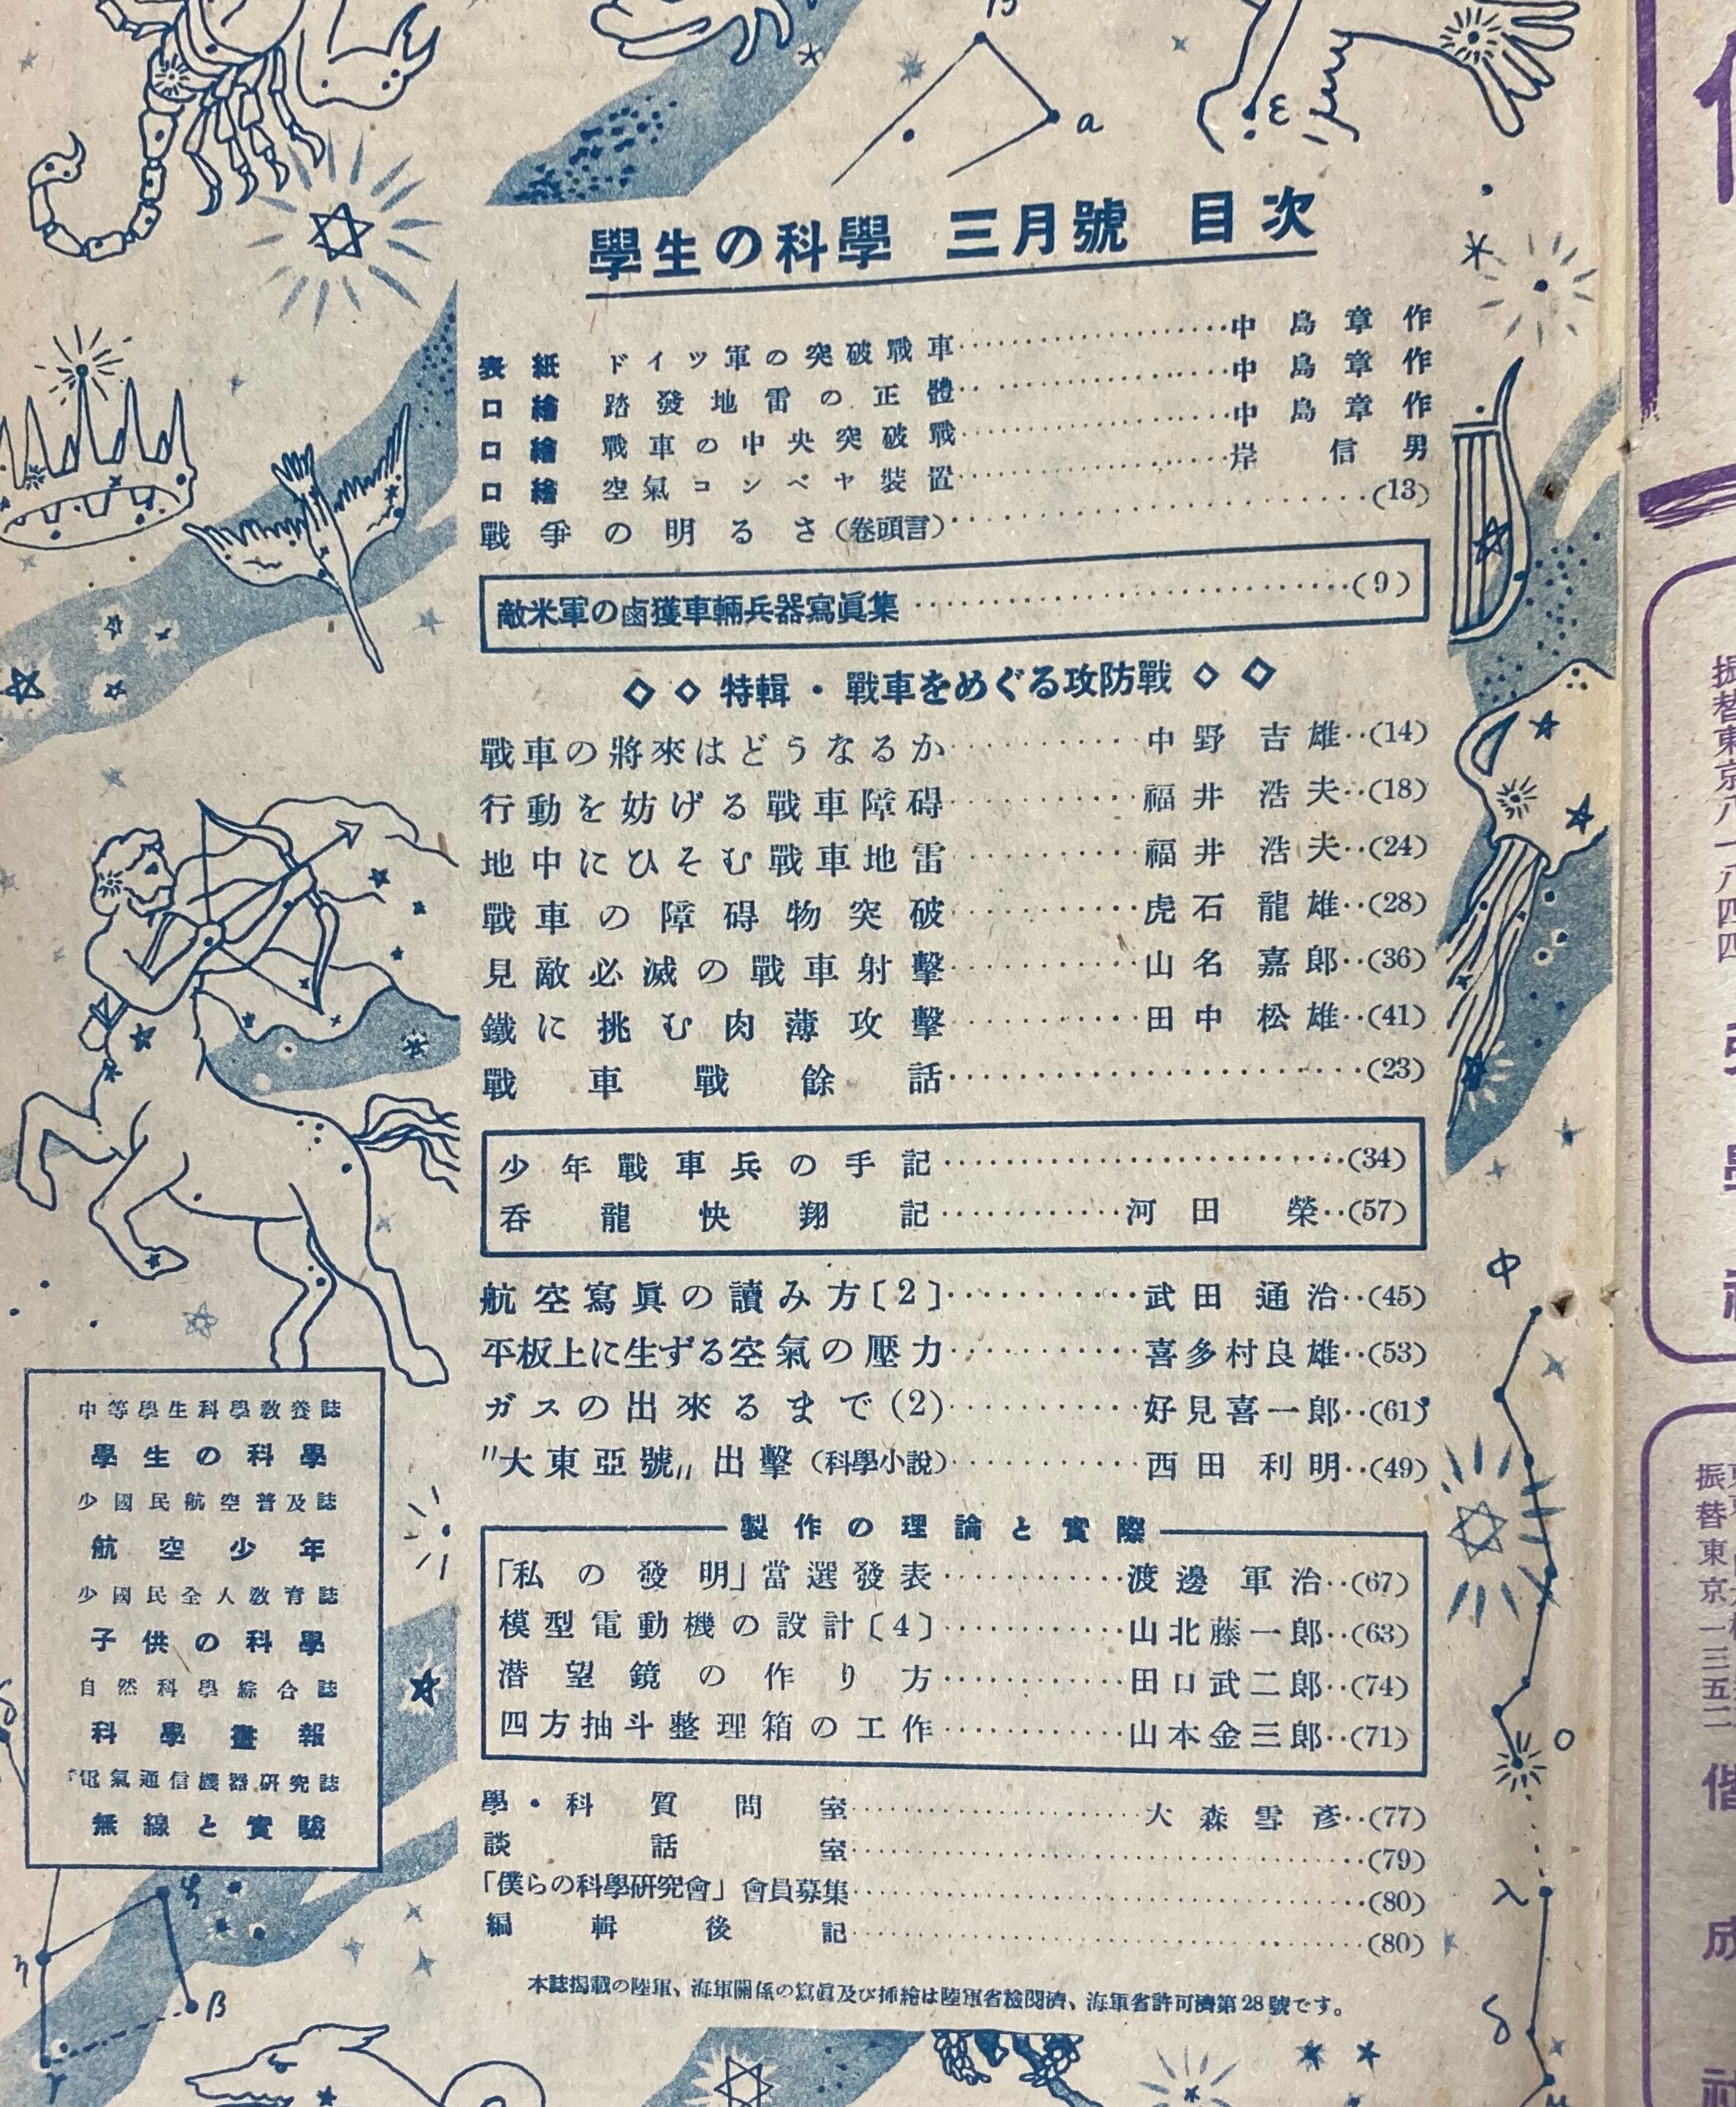 學生の科學 三月號 目次
表紙 ドイツ軍の突破戰車……中島章作
口繪 踏發地雷の正體……中島章作
口繪 戰車の中央突破戰……中島章作
口繪 空氣コンベヤ裝置……岸信男
戰爭の明るさ(卷頭言)……(13)
敵米軍の鹵獲車輛兵器寫眞集……(9)
◇◇特輯・戰車をめぐる攻防戰◇◇
戰車の將來はどうなるか……中野吉雄‥(14)
行動を妨げる戰車障碍……福井浩夫‥(18)
地中にひそむ戰車地雷……福井浩夫‥(24)
戰車の障碍物突破……虎石龍雄‥(28)
見敵必滅の戰車射擊……山名嘉郎‥(36)
鐵に挑む肉薄攻擊……田中松雄‥(41)
戰車戰餘話……(23)
少年戰車兵の手記……(34)
呑龍快翔記……河田榮‥(57)
航空寫眞の讀み方〔2〕……武田通治‥(45)
平板上に生ずる空氣の壓力……喜多村良雄‥(53)
ガスの出來るまで(2)……好見喜一郎‥(61)
〃大東亞號〃出擊(科學小說)……西田利明‥(49)
製作の理論と實際
「私の發明」當選發表……渡邊軍治‥(67)
模型電動機の設計〔4〕……山北藤一郎‥(63)
潛望鏡の作り方……田口武二郎‥(74)
四方抽斗整理箱の工作……山本金三郎‥(71)
學・科質問室……大森雪彥‥(77)
談話室……(79)
「僕らの科學硏究會」會員募集……(80)
編輯後記……(80)
本誌揭載の陸軍、海軍關係の寫眞及び揷繪は陸軍省檢閱濟、海軍省許可濟第28號です。
中等學生科學敎養誌
學生の科學
少國民航空普及誌
航空少年
少國民全人敎育誌
子供の科學
自然科學綜合誌
科學畫報
電氣通信機器硏究誌
無線と實驗
β
a
ε
ο
λ
δ
η
β
γ
振替東京八一八四四
振替東京一三五二
偕成社